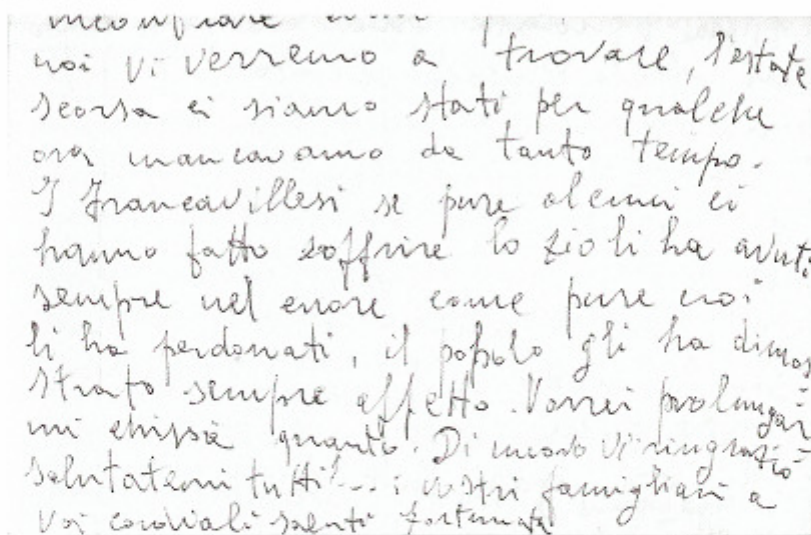 noi vi verremo a trovare, l'estate
scorsa ci siamo stati per qualche
ora mancavamo da tanto tempo.
I Francavillesi se pure alcuni ci
hanno fatto soffrire lo zio li ha avuti
sempre nel cuore come pure noi
li ha perdonati, il popolo gli ha dimos
strato sempre affetto. Vorrei prolungar
mi chissà quanto. Di nuovo vi ringrazio
salutatemi tutti... i vostri famigliari a
voi cordiali saluti Fortunata